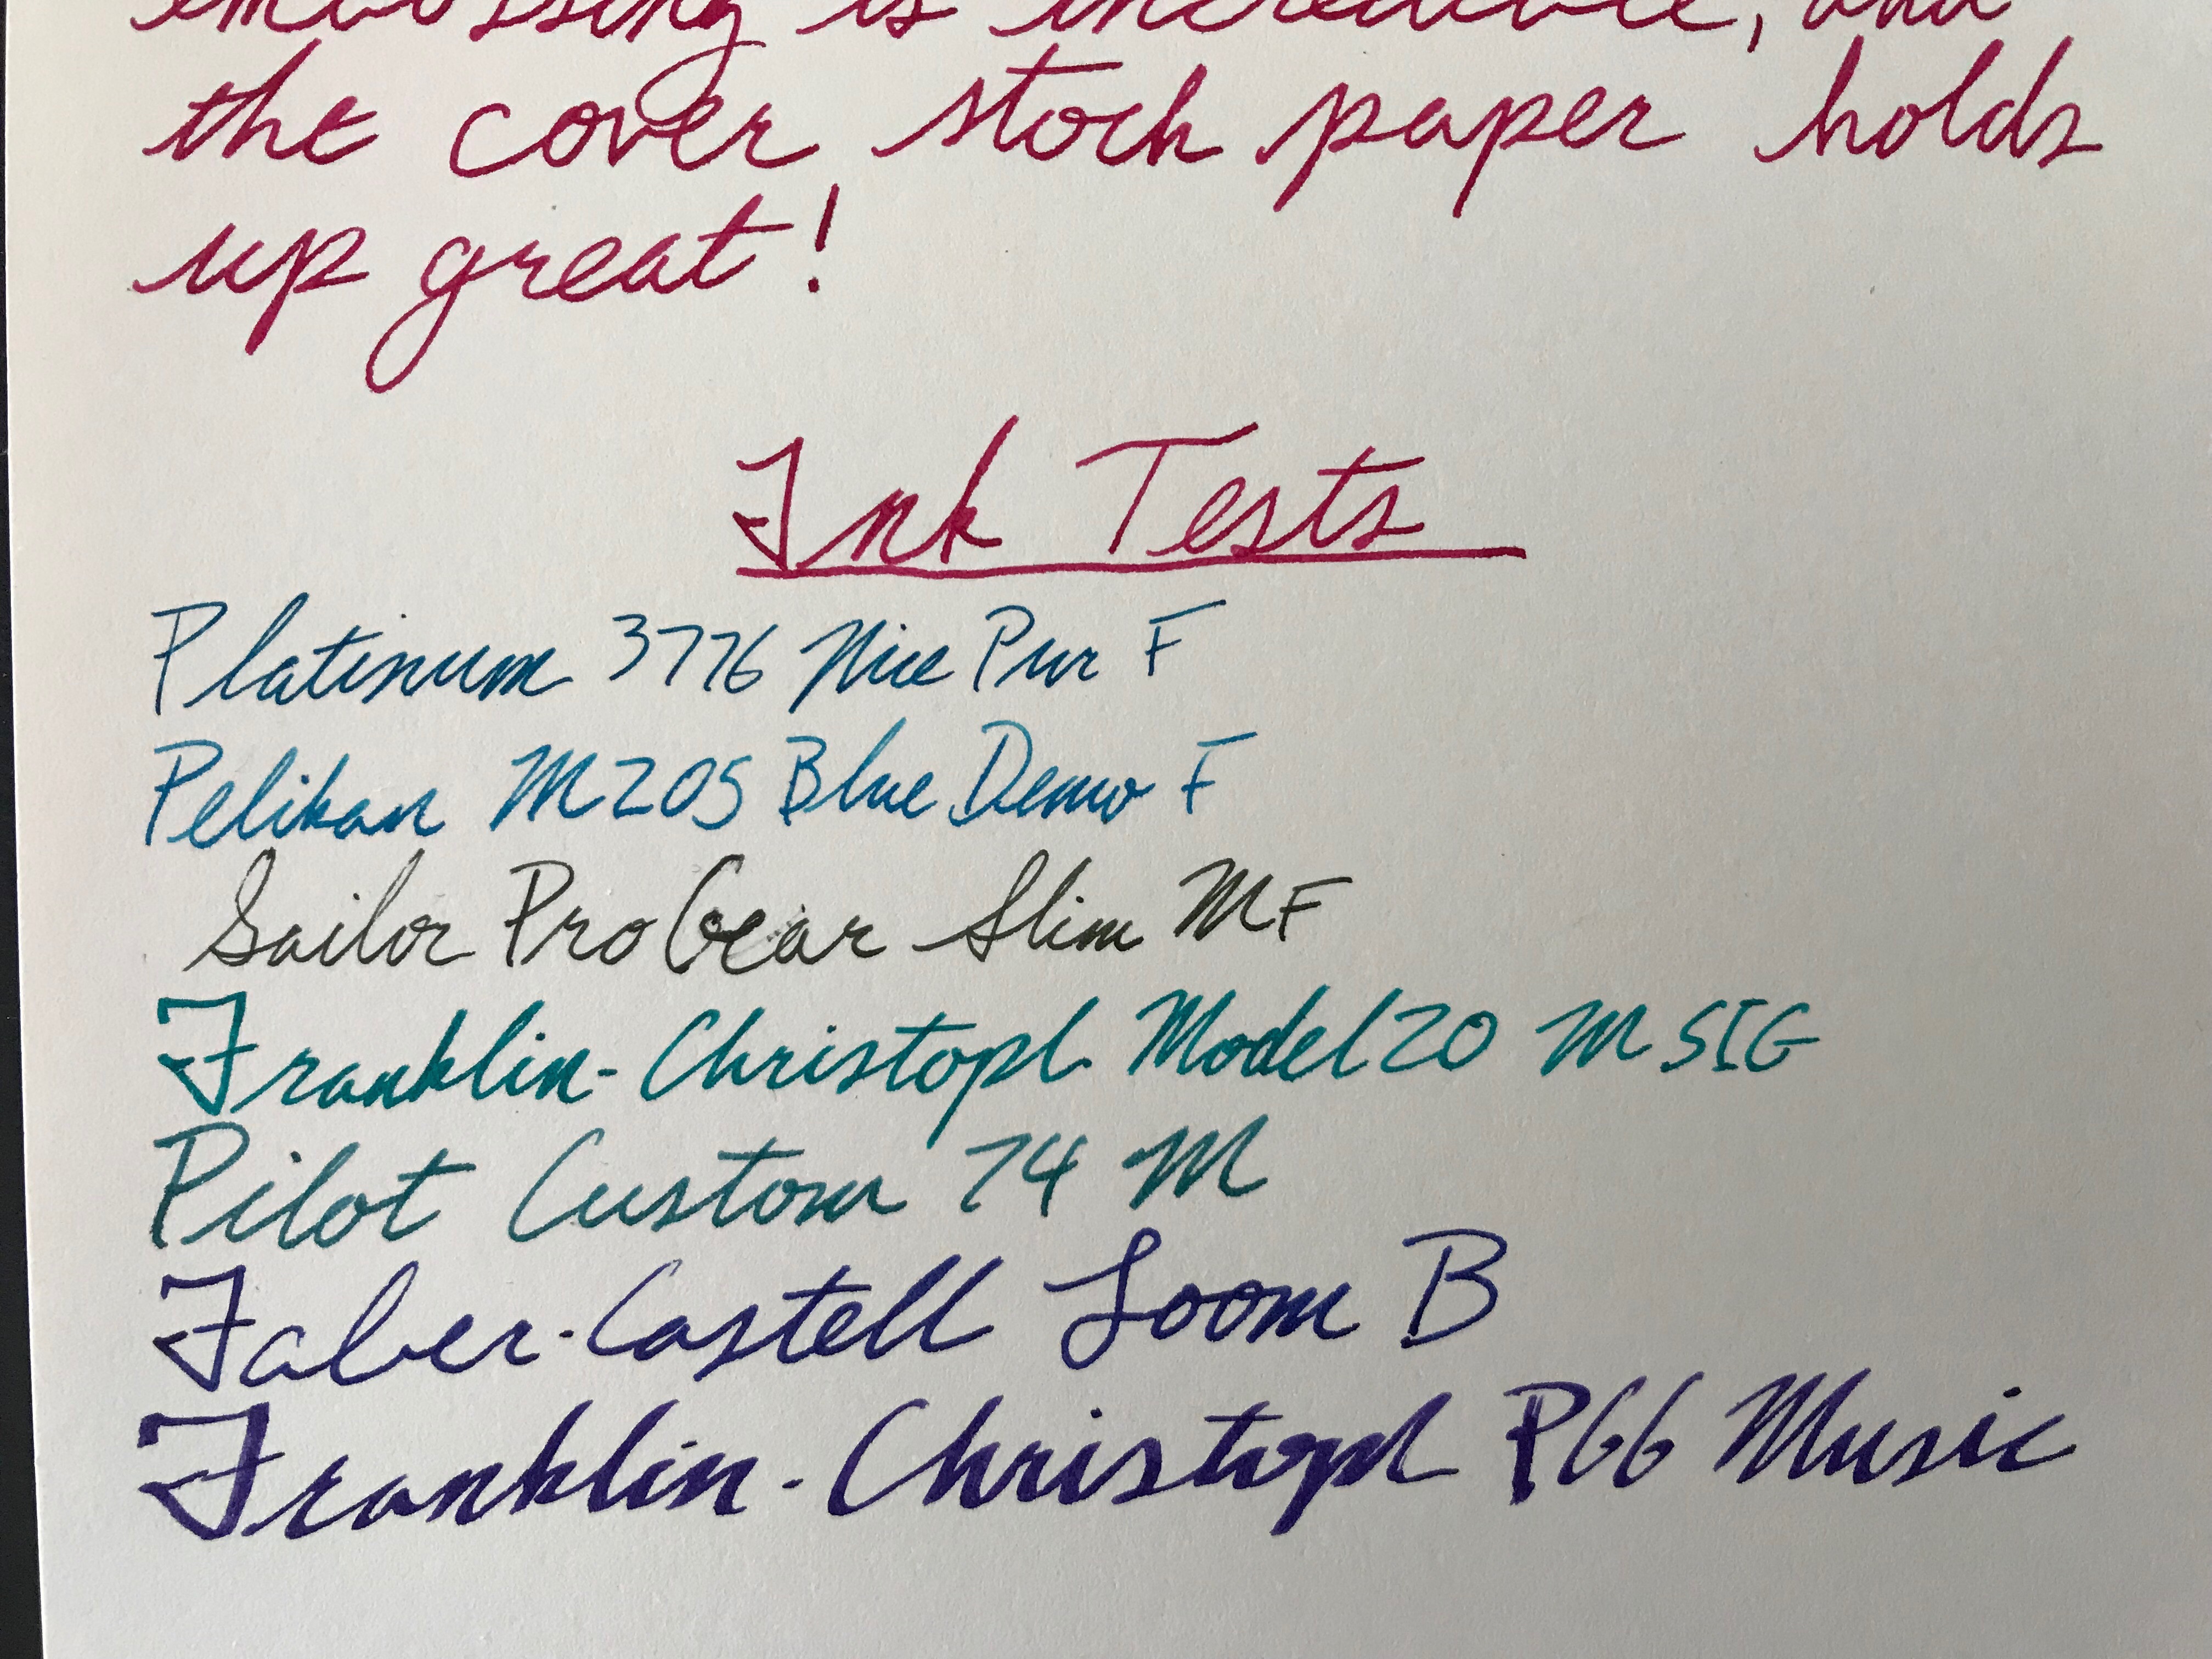 embossing is incredible, and
the cover stock paper holds
up great!
Ink Tests
Platinum 3776 Nice Pur F
Pelikan M205 Blue Demo F
Sailor Pro Gear Slim MF
Franklin-Christoph Model 20 M SIG
Pilot Custom 74 M
Faber-Castell Loom B
Franklin-Christoph P66 Music